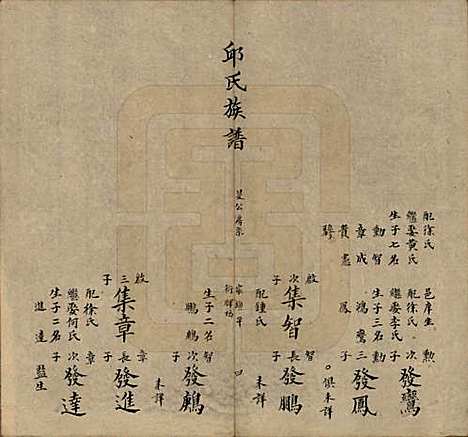 配徐氏
繼娶黃氏
生子七名
勳智
章成
貴憲
騂
邑庠生
配徐氏
繼娶李氏
生子三名
鴻鸞
鳳
勲次子
發鸞
勳三子
發鳳
俱未詳
啟次子
集智
配鍾氏
智長子
發鵬
未詳
邱氏族譜
生子二名
鵬鶊
智次子
發鶊
未詳
啟三子
集章
配徐氏
繼娶何氏
生子二名
進達
章長子
發進
章次子
發達
監生